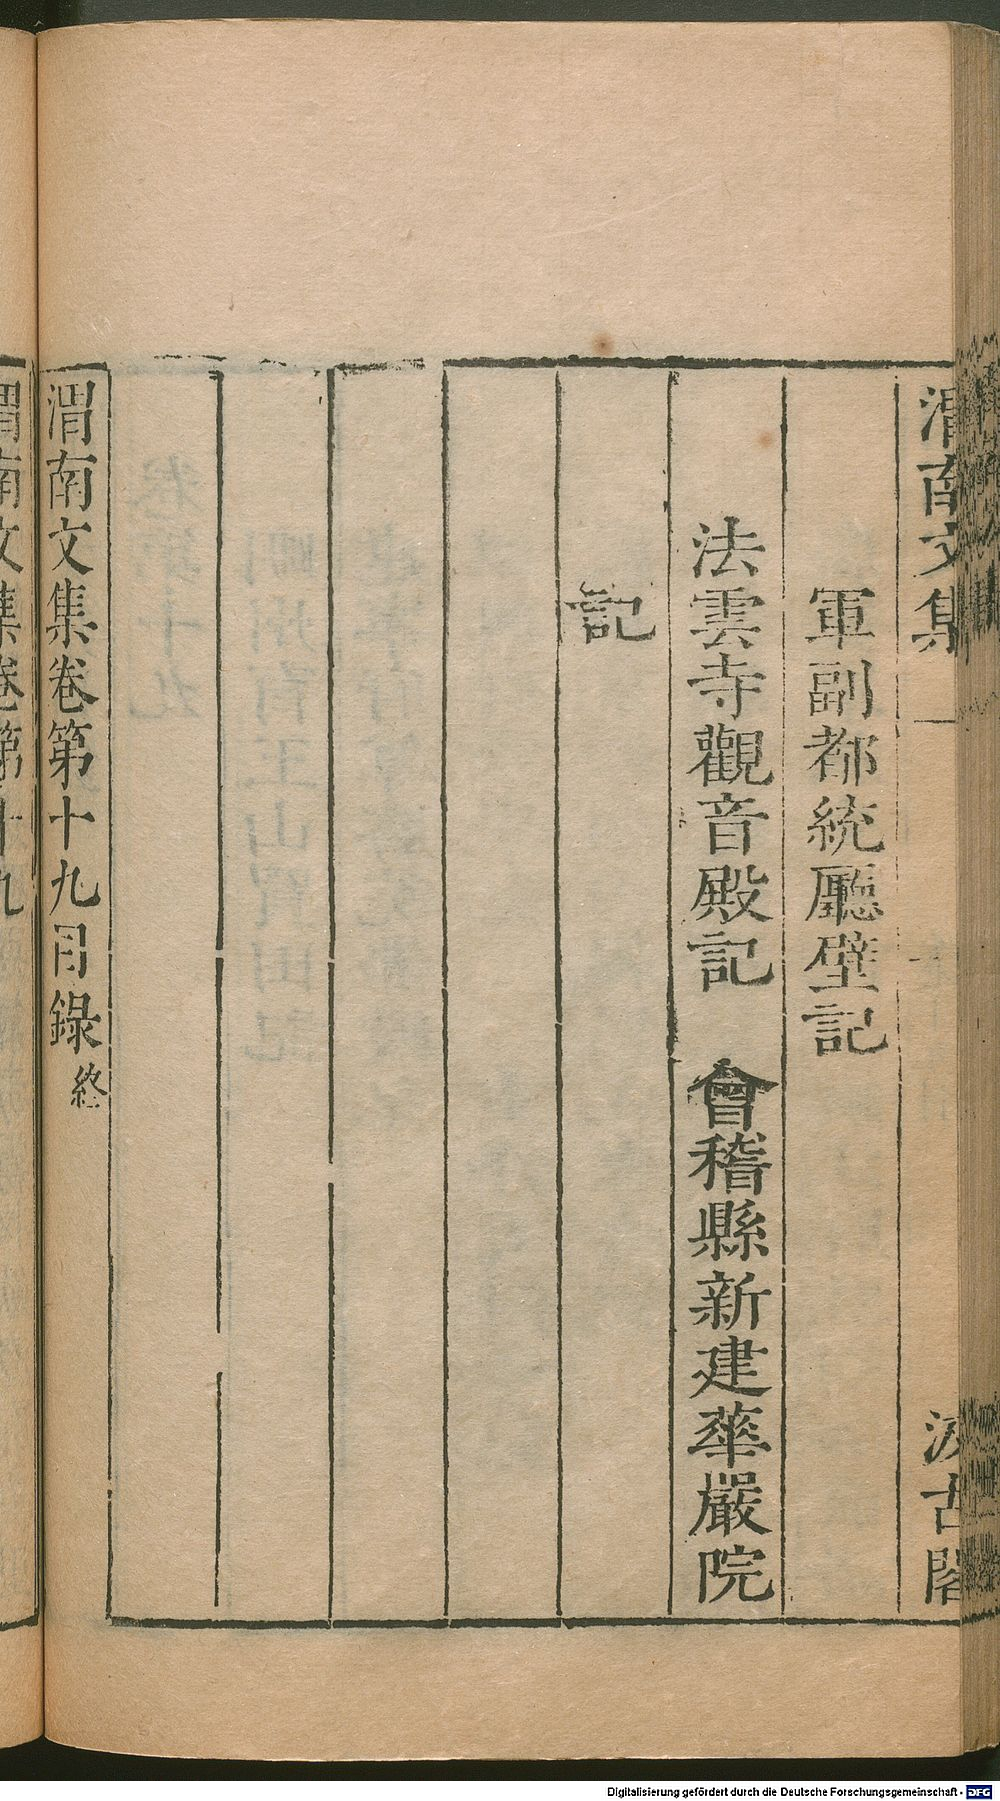 渭南文集
汲古閣
軍副都統廳壁記
法雲寺觀音殿記　會稽縣新建華嚴院
記
渭南文集卷第十九目錄終
渭南文集卷第十九
Digitalisierung gefördert durch die Deutsche Forschungsgemeinschaft - DFG